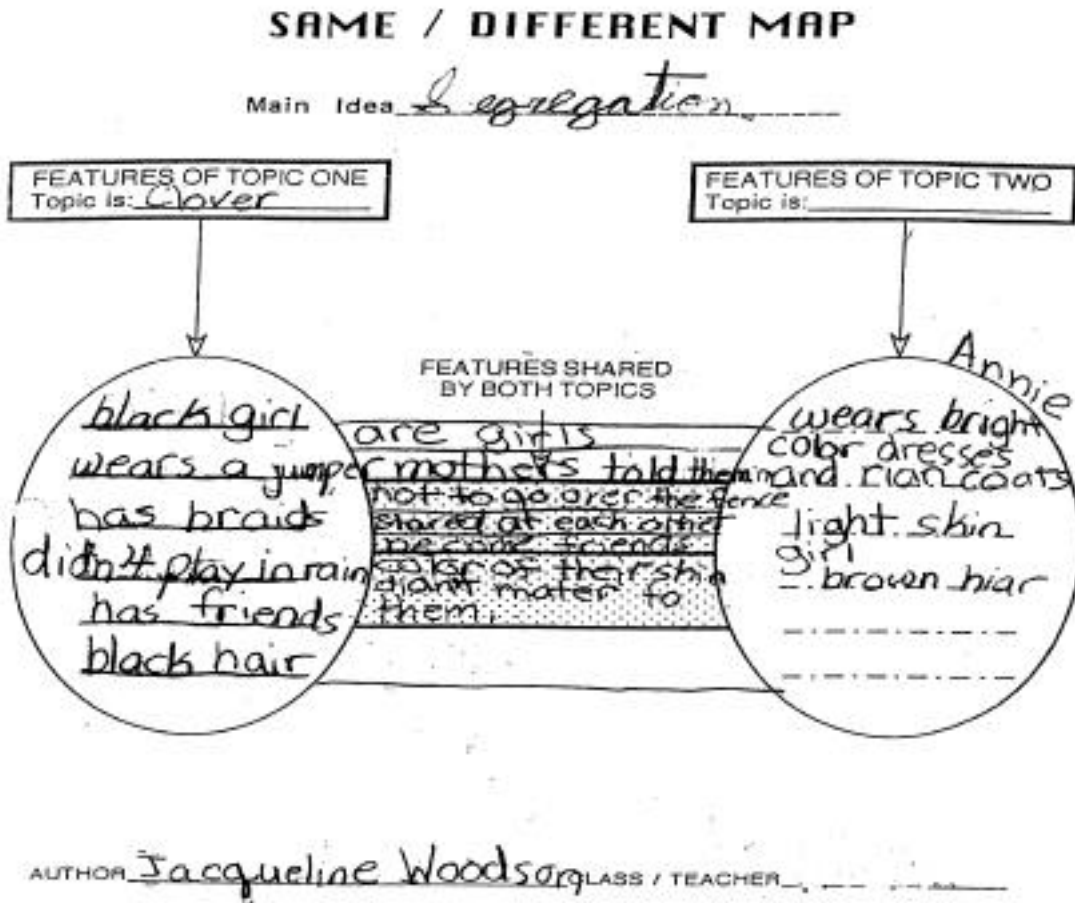 SAME / DIFFERENT MAP
Main Idea Segregation
FEATURES OF TOPIC ONE
Topic is: Clover
FEATURES OF TOPIC TWO
Topic is:
FEATURES SHARED
BY BOTH TOPICS
black girl
wears a jumper
has braids
didn't play in rain
has friends
black hair
are girls
mothers told them
not to go over the fence
stared at each other
become friends
color of their skin
didnt mater to
them.
Annie
wears bright
color dresses
and rian coats
light skin
girl
brown hiar
AUTHOR Jacqueline Woodson CLASS / TEACHER